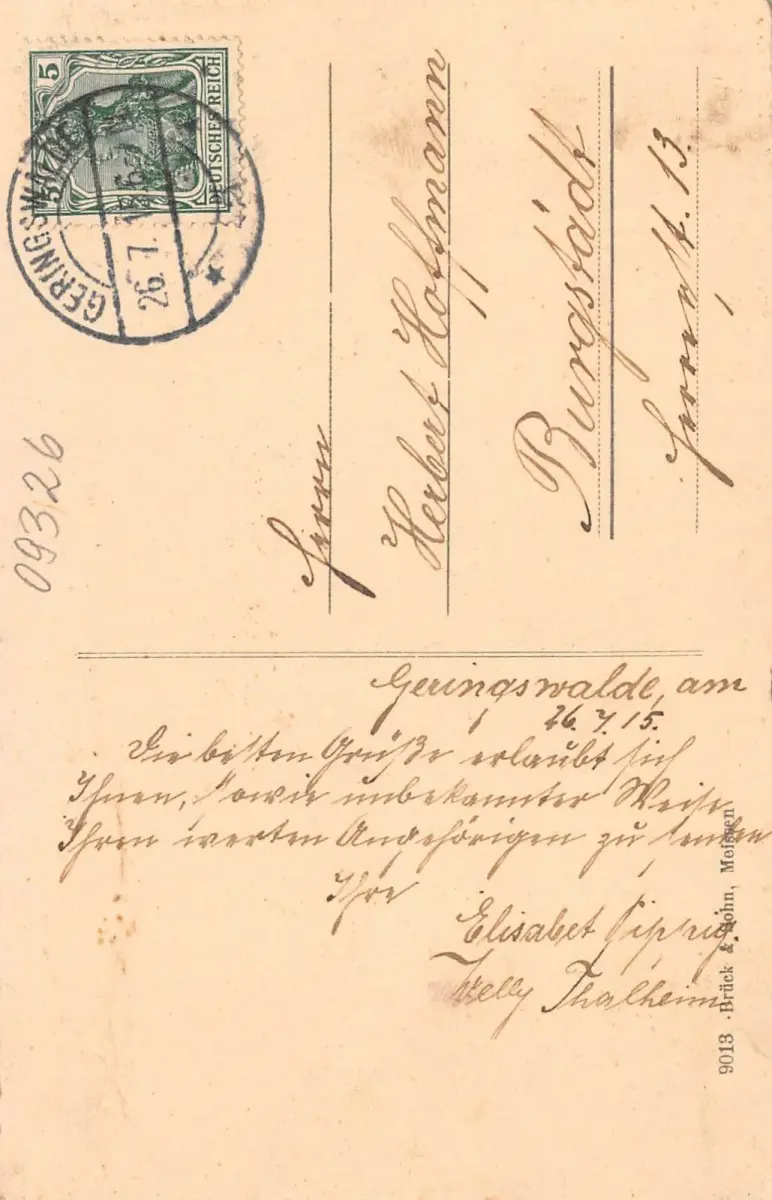 5
5
DEUTSCHES REICH
GERINGSWALDE
26.7.
09326
Herrn
Herbert Hoffmann
Burgstädt
Herrenst. 13.
Geringswalde, am
26.7.15.
Die besten Grüße erlaubt sich
Ihnen, sowie unbekannter Weise
Ihren werten Angehörigen zu senden
Ihre
Elisabet
Thalheim
9013 Brück & Sohn, Meissen